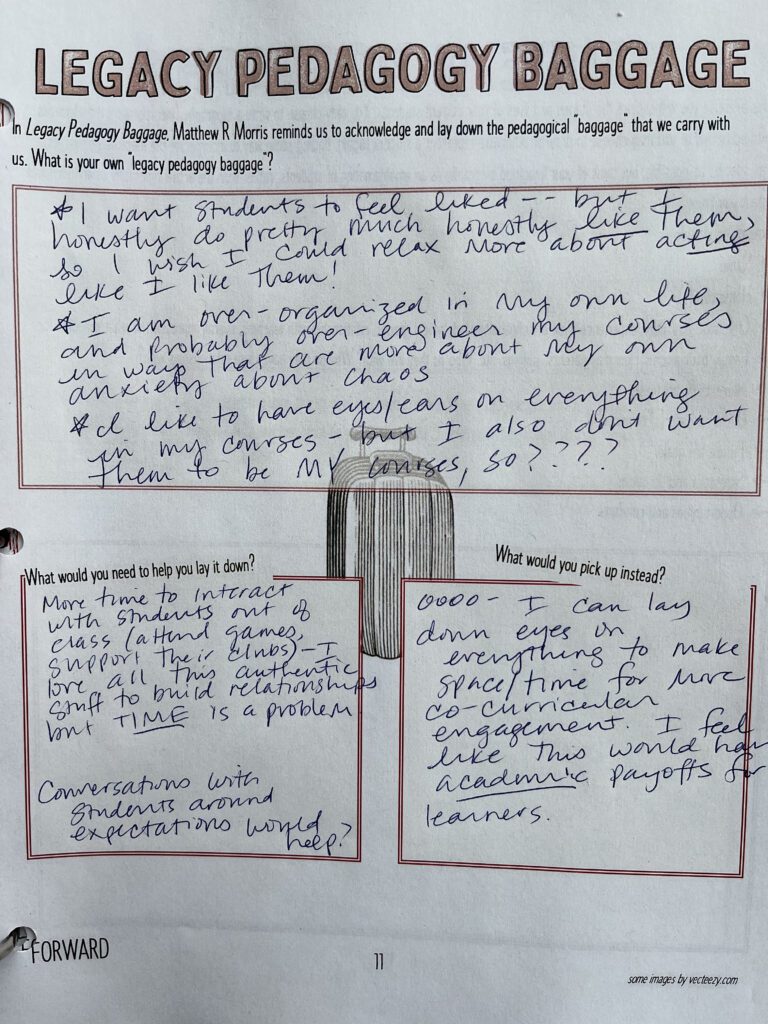 LEGACY PEDAGOGY BAGGAGE
In Legacy Pedagogy Baggage, Matthew R Morris reminds us to acknowledge and lay down the pedagogical "baggage" that we carry with
us. What is your own "legacy pedagogy baggage"?
* I want students to feel liked -- but I
honestly do pretty much honestly like them,
so I wish I could relax more about acting
like I like them!
* I am over-organized in my own life,
and probably over-engineer my courses
in ways that are more about my own
anxiety about chaos
* I like to have eyes/ears on everything
in my courses - but I also dont want
them to be MY courses, so????
What would you need to help you lay it down?
More time to interact
with students out of
class (attend games,
support their clubs) - I
love all this authentic
stuff to build relationships
but TIME is a problem
Conversations with
students around
expectations would
help?
What would you pick up instead?
oooo - I can lay
down eyes on
everything to make
space/time for more
co-curricular
engagement. I feel
like this would have
academic payoffs for
learners.
FORWARD
11
some images by vecteezy.com